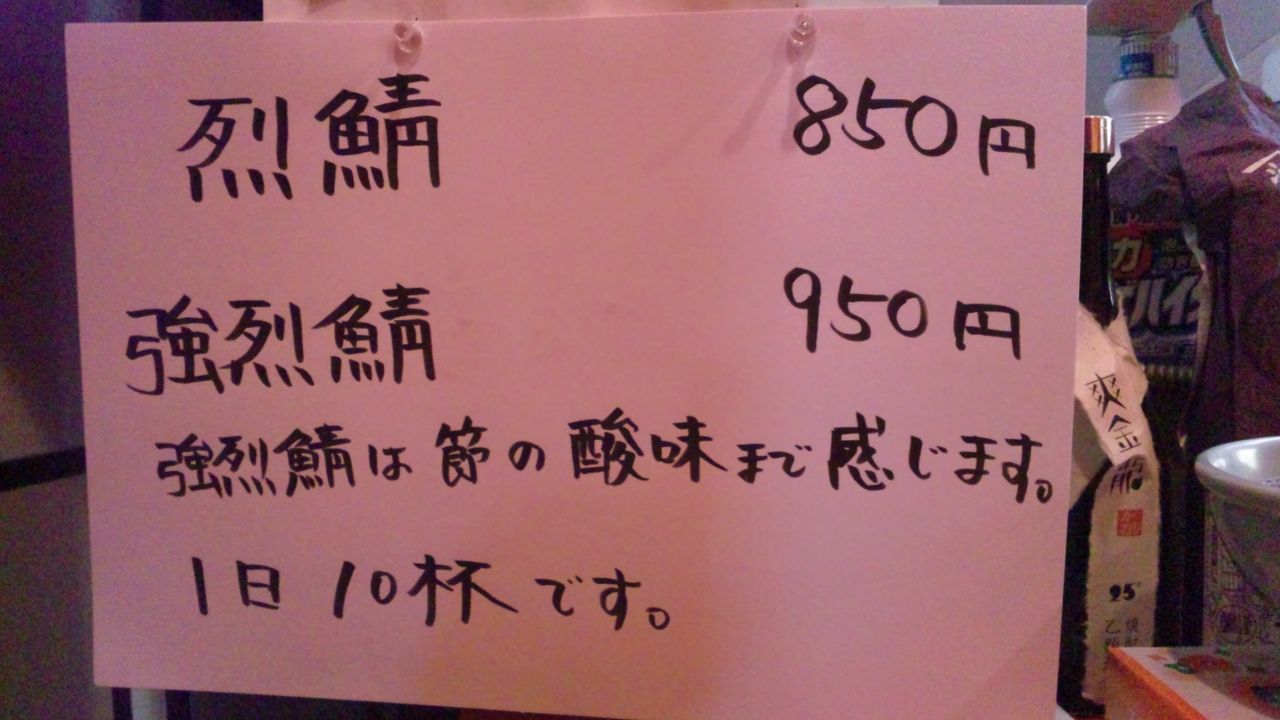 烈鯖 850円
強烈鯖 950円
強烈鯖は節の酸味まで感じます。
1日 10杯です。
爽金
25°